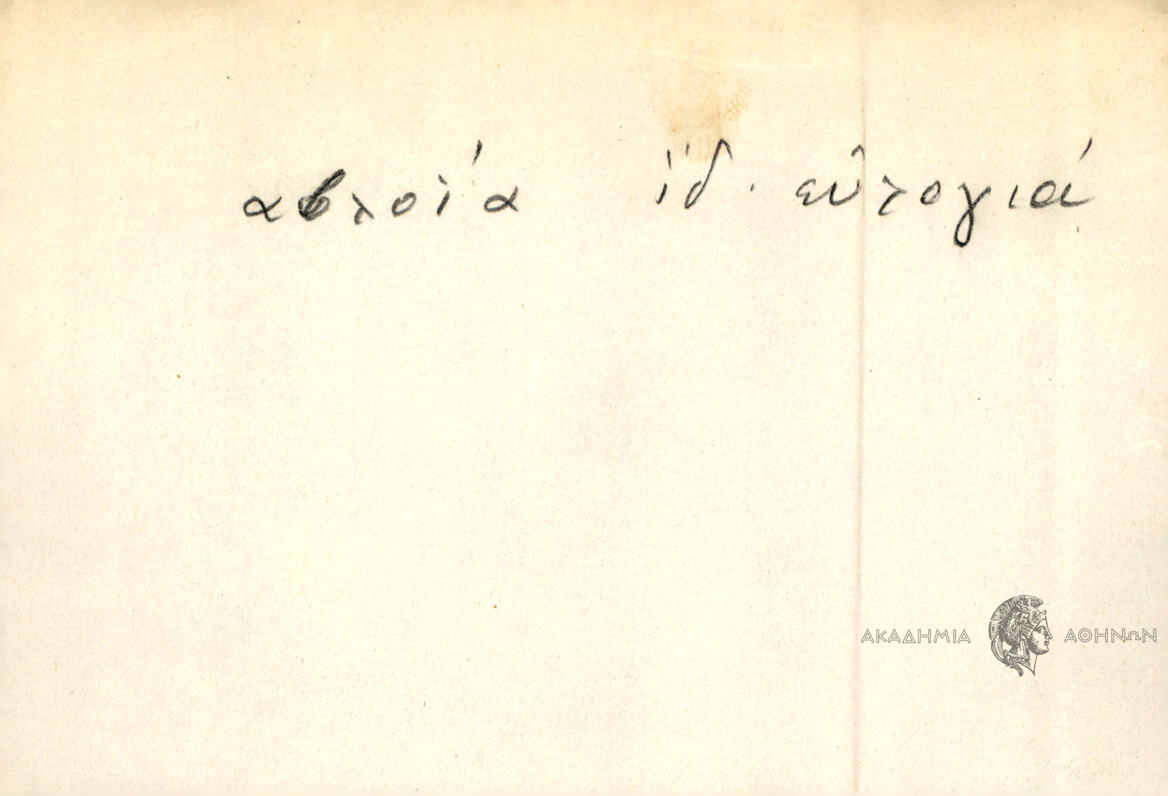 αβλοΐα ἰδ. εὐλογιά
ΑΚΑΔΗΜΙΑ ΑΘΗΝΩΝ